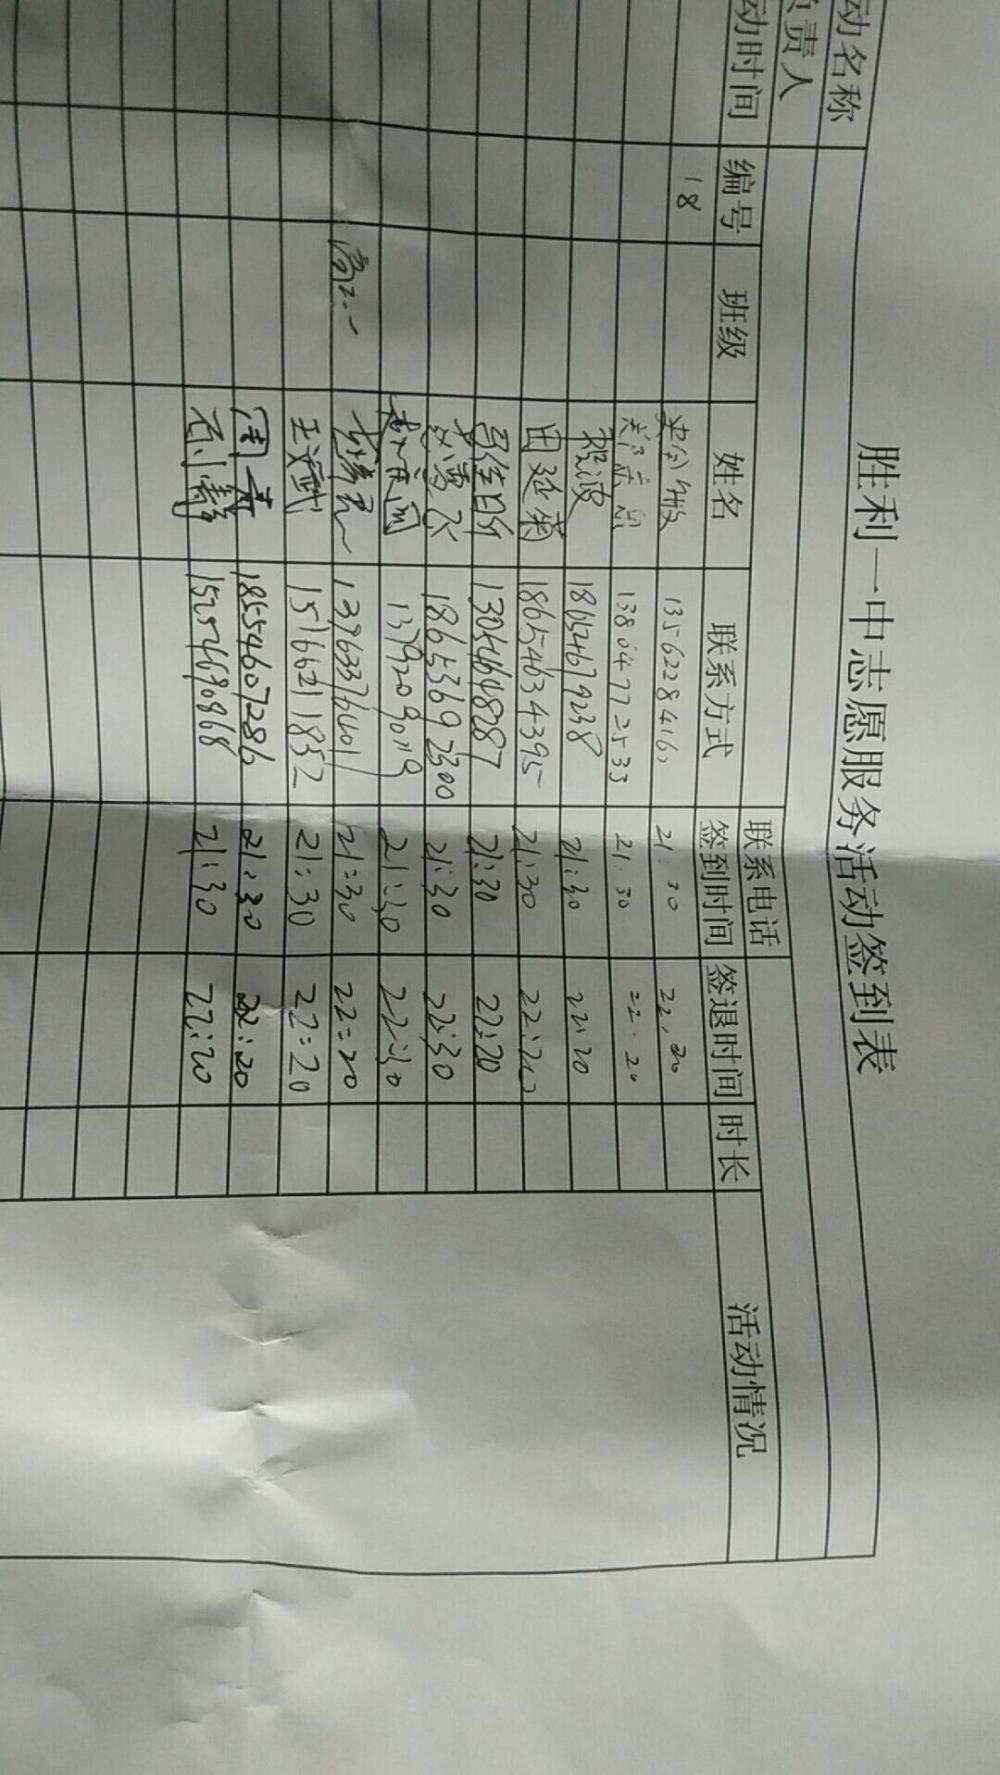 胜利一中志愿服务活动签到表
动名称
负责人 联系电话
动时间 编号 班级 姓名 联系方式 签到时间 签退时间 时长 活动情况
18 21:30 22:20
郑立忠 13804772533 21:30 22:20
程波 18654679238 21:30 22:20
田延菊 18654634395 21:30 22:20
13054648287 21:30 22:20
赵雪飞 18653692300 21:30 22:30
21:30 22:30
高二.一 13763376401 21:30 22:20
王斌 15166211852 21:30 22:20
周青 18554607286 21:30 22:20
石小静 15254690868 21:30 22:20